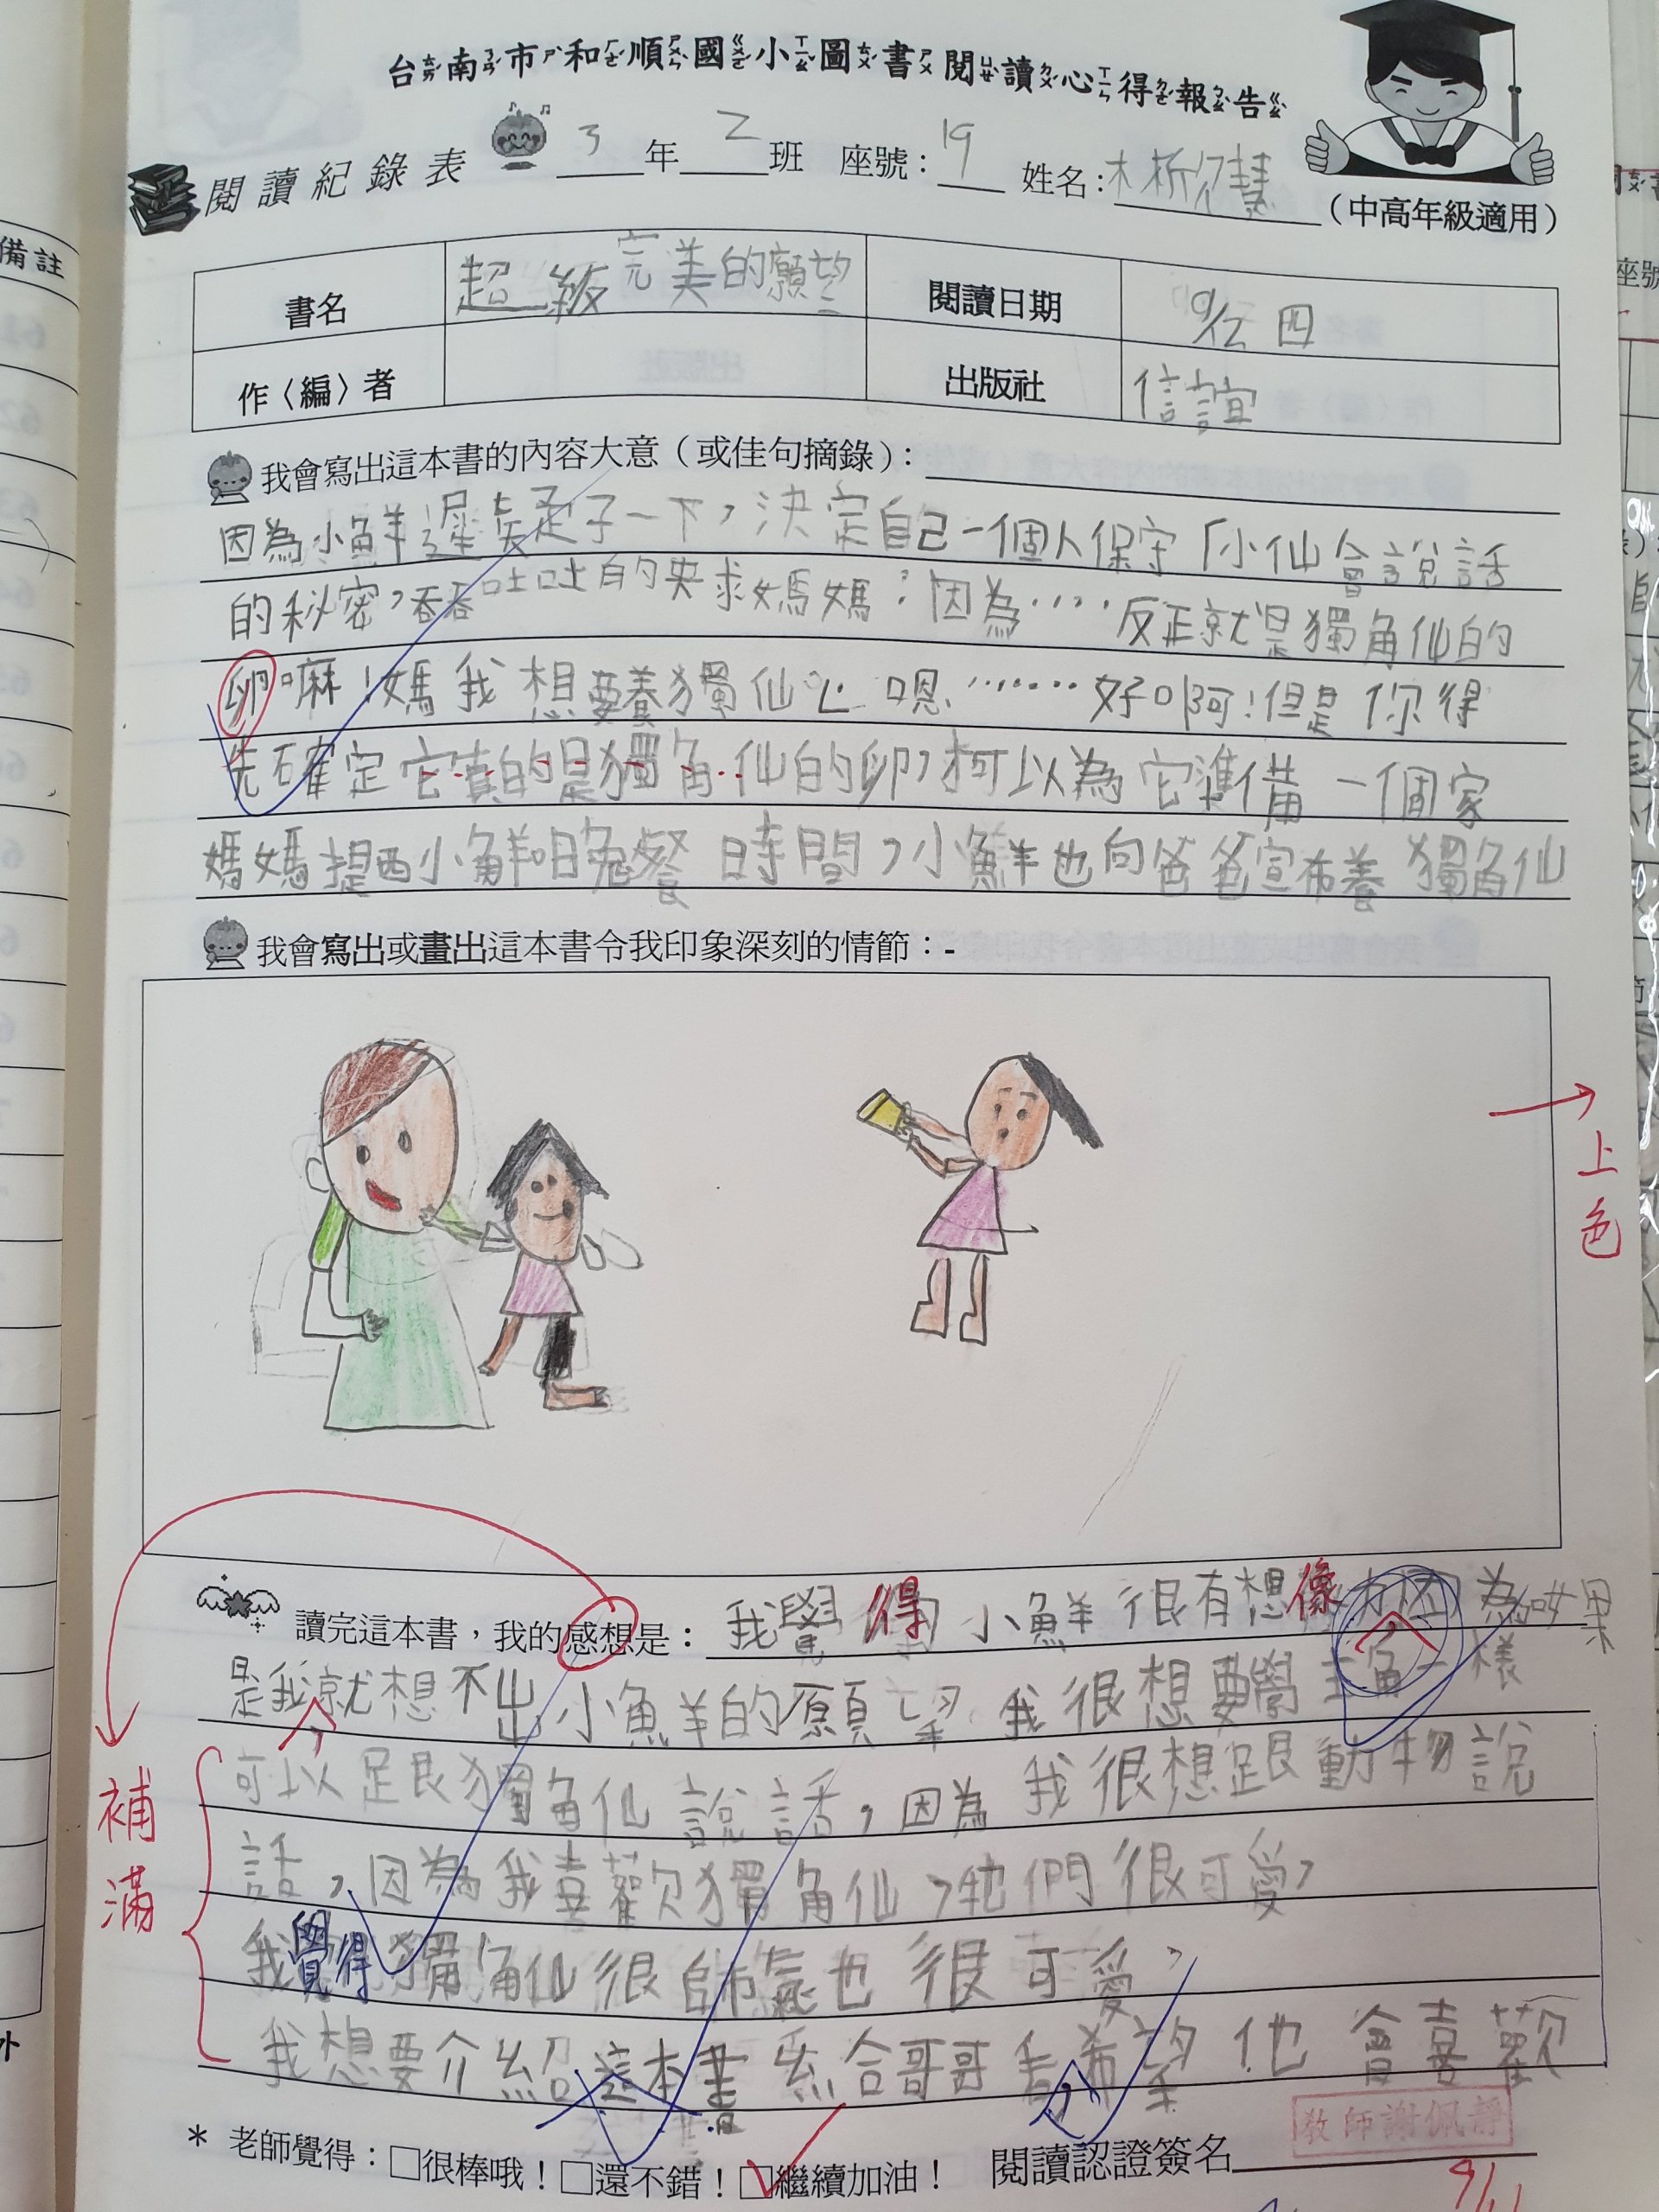 台南市和順國小圖書閱讀心得報告
閱讀紀錄表 3年2班 座號：19 姓名：
（中高年級適用）
書名 超級完美的願望 閱讀日期 四
作〈編〉者 出版社 信誼
我會寫出這本書的內容大意（或佳句摘錄）：
因為小鮮遲疑了一下，決定自己一個人保守「小仙會說話
的秘密，吞吞吐吐的央求媽媽：因為‧‧‧‧反正就是獨角仙的
卵嘛！媽我想要養獨仙 嗯‧‧‧‧‧‧‧好啊！但是你得
先確定它真的是獨角仙的卵，才可以為它準備一個家
媽媽提西小鮮晚餐時間，小鮮也向爸爸宣布養獨角仙
我會寫出或畫出這本書令我印象深刻的情節：-
上色
讀完這本書，我的感想是：我覺得小鮮很有想像力因為如果
是我就想不出小鮮的願望 我很想要學主角一樣
可以跟獨角仙說話，因為我很想跟動物說
話，因為我喜歡獨角仙，牠們很可愛，
我覺得獨角仙很帥氣也很可愛，
我想要介紹這本書給哥哥看希望他會喜歡
補滿
* 老師覺得：□很棒哦！□還不錯！□繼續加油！ 閱讀認證簽名
教師謝佩靜
9/11
備註